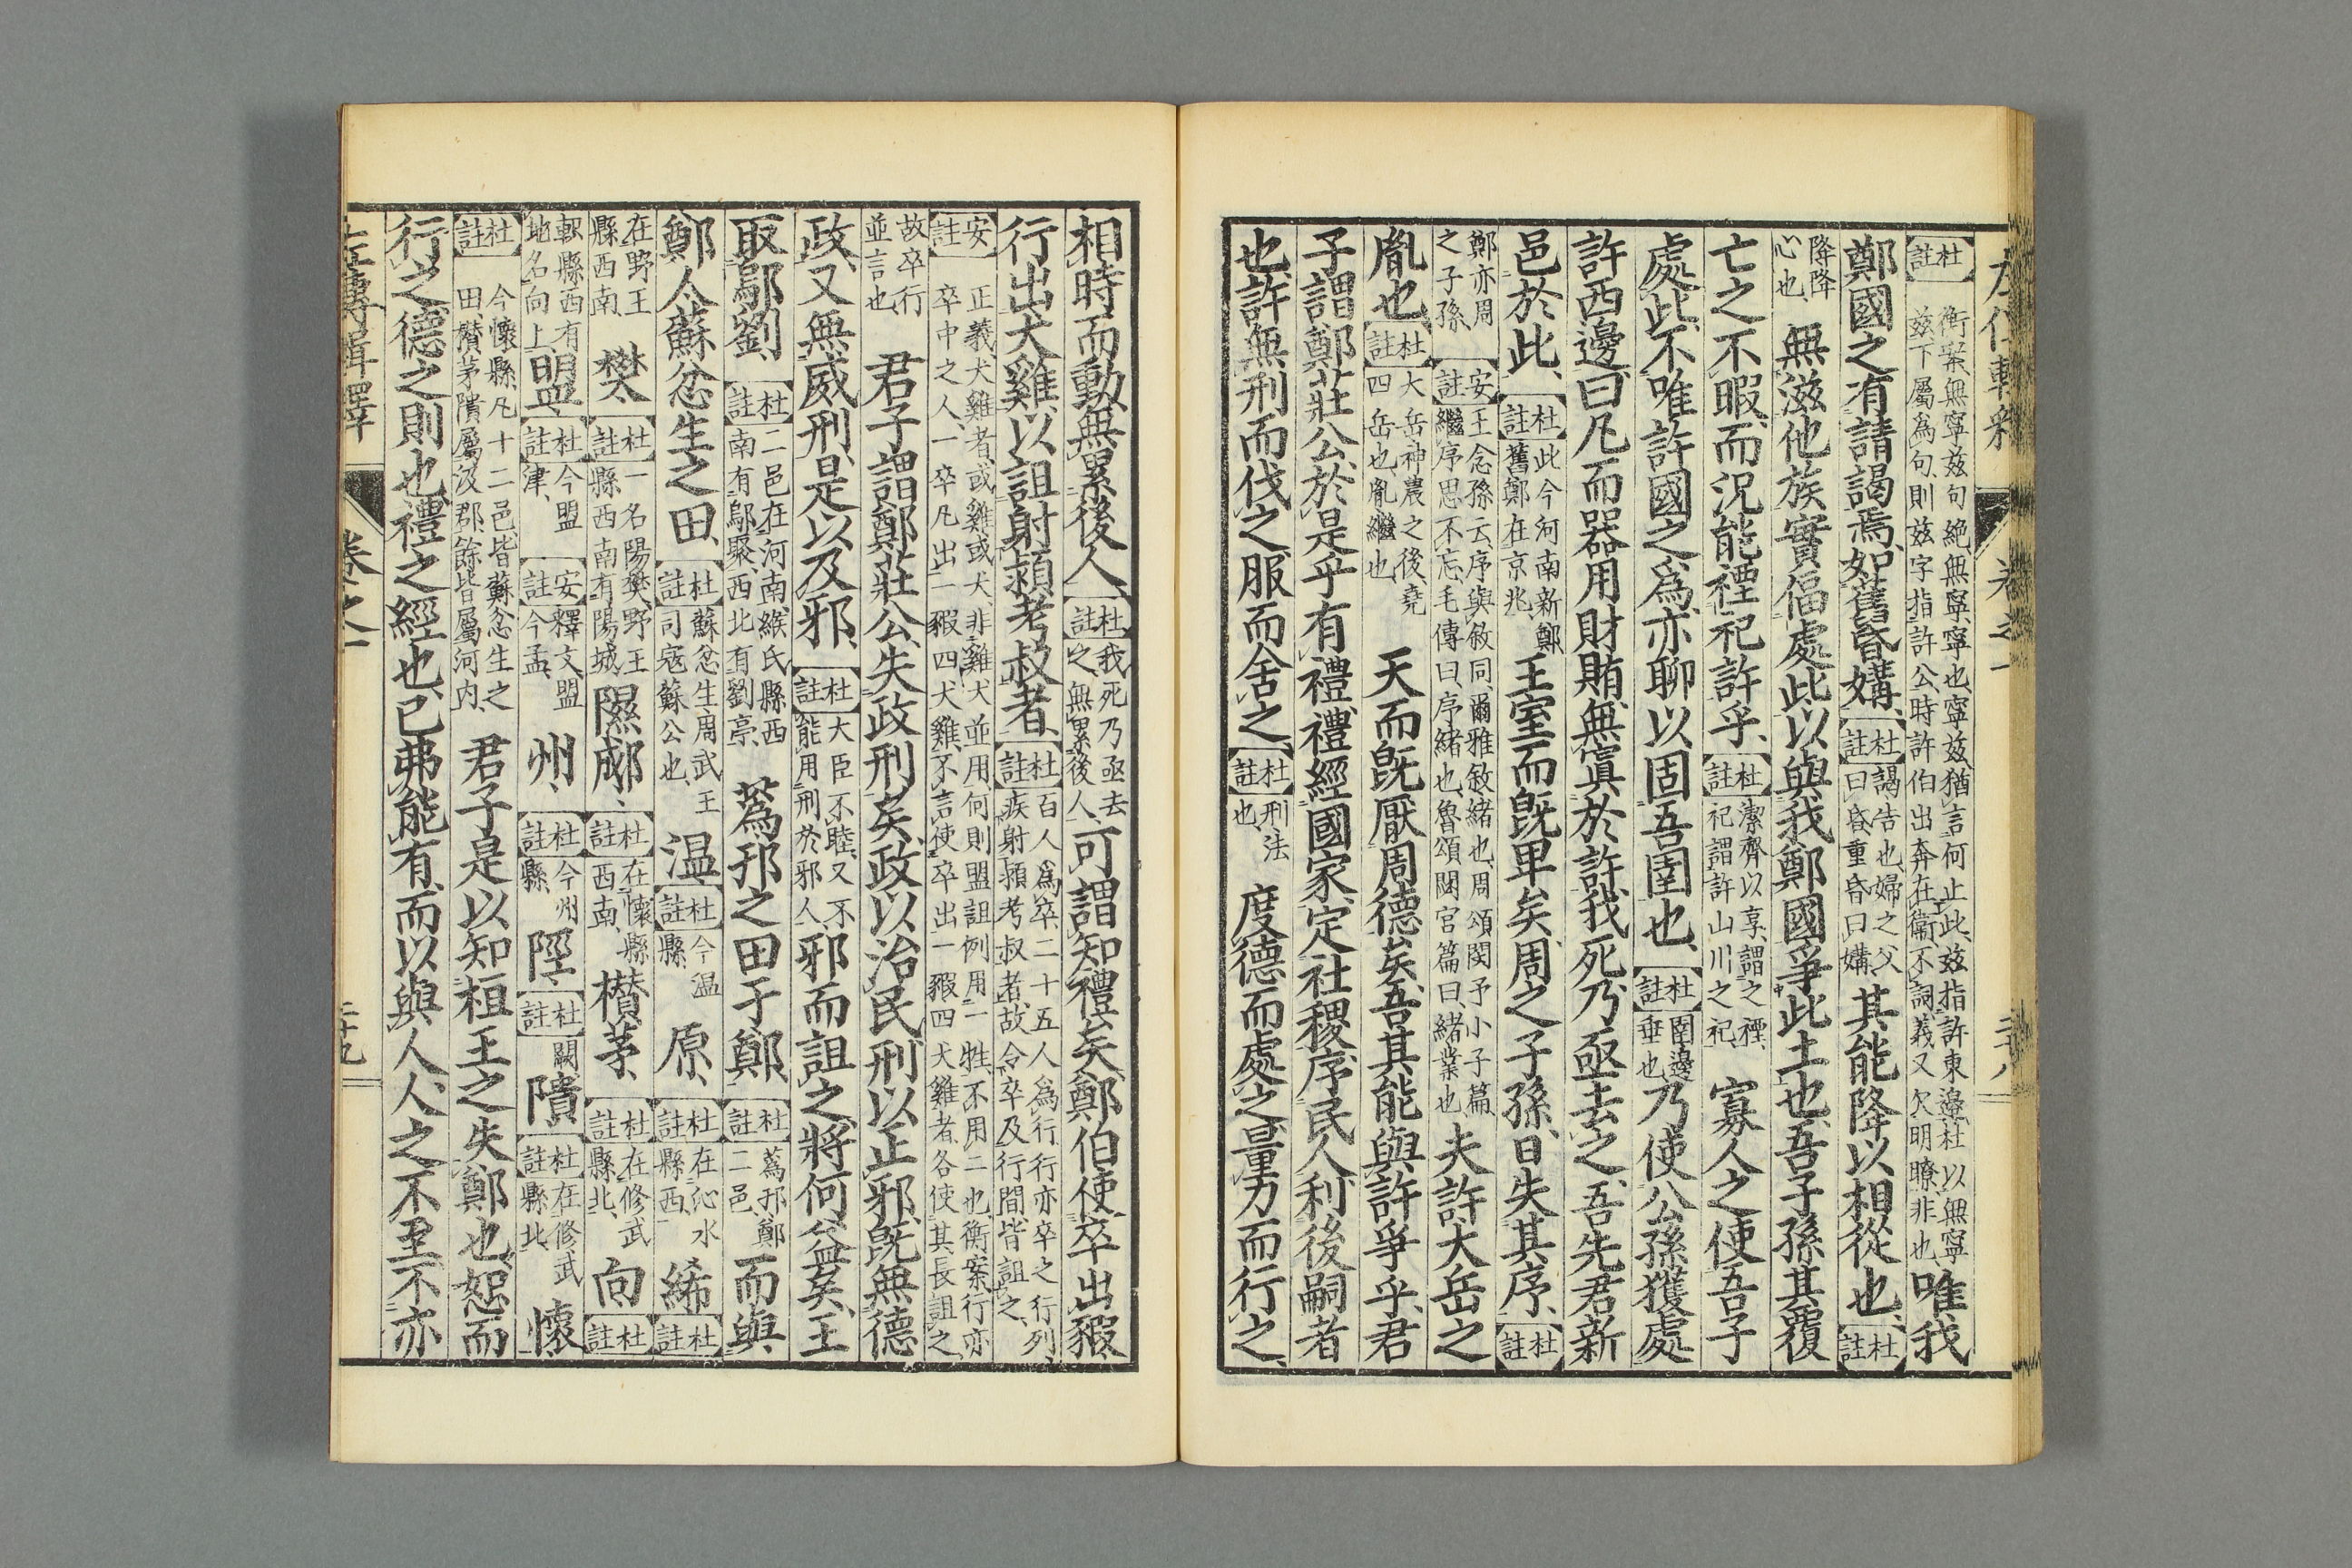 左傳輯釋 卷之一 二十八
杜註 衡案無寧茲句絕無寧寧也寧茲猶言何止此茲指許東邊杜以無寧茲下屬爲句則茲字指許公時許伯出奔在衞不詞義又欠明瞭非也唯我
鄭國之有請謁焉如舊昏媾杜註謁告也婦之父曰昏重昏曰媾其能降以相從也杜註
降降心也無滋他族實偪處此以與我鄭國爭此土也吾子孫其覆
亡之不暇而況能禋祀許乎杜註潔齊以享謂之禋祀謂許山川之祀寡人之使吾子
處此不唯許國之爲亦聊以固吾圉也杜註圉邊垂也乃使公孫獲處
許西邊曰凡而器用財賄無寘於許我死乃亟去之吾先君新
邑於此杜註此今河南新鄭舊鄭在京兆王室而旣卑矣周之子孫日失其序杜註
鄭亦周之子孫安註王念孫云序與敘同爾雅敘緒也周頌閔予小子篇繼序思不忘毛傳曰序緒也魯頌閟宮篇曰緒業也夫許大岳之
胤也杜註大岳神農之後堯四岳也胤繼也天而旣厭周德矣吾其能與許爭乎君
子謂鄭莊公於是乎有禮禮經國家定社稷序民人利後嗣者
也許無刑而伐之服而舍之杜註刑法也度德而處之量力而行之
相時而動無累後人杜註我死乃亟去之無累後人可謂知禮矣鄭伯使卒出豭
行出犬雞以詛射潁考叔者杜註百人爲卒二十五人爲行行亦卒之行列疾射潁考叔者故令卒及行間皆詛之
安註正義犬雞者或雞或犬非雞犬並用何則盟詛例用一牲不用二也衡案行亦卒中之人一卒凡出一豭四犬雞不言使卒出一豭四犬雞者各使其長詛之
故卒行並言也君子謂鄭莊公失政刑矣政以治民刑以正邪旣無德
政又無威刑是以及邪杜註大臣不睦又不能用刑於邪人邪而詛之將何益矣王
取鄔劉杜註二邑在河南緱氏縣西南有鄔聚西北有劉亭蔿邘之田于鄭杜註蔿邘鄭二邑而與
鄭人蘇忿生之田杜註蘇忿生周武王司寇蘇公也溫杜註今溫縣原杜註在沁水縣西絺杜註
在野王縣西南樊杜註一名陽樊野王縣西南有陽城隰郕杜註在懷縣西南欑茅杜註在修武縣北向杜註
軹縣西有地名向上盟杜註今盟津安註釋文盟今孟州杜註今州縣陘杜註闕隤杜註在修武縣北懷
杜註今懷縣凡十二邑皆蘇忿生之田欑茅隤屬汲郡餘皆屬河內君子是以知桓王之失鄭也恕而
行之德之則也禮之經也已弗能有而以與人人之不至不亦
左傳輯釋 卷之一 二十九